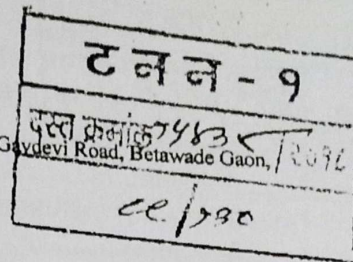 ट न न - १
दस्त क्रमांक ७५८३ / २०१८
Gavdevi Road, Betawade Gaon,
८८ / १३०